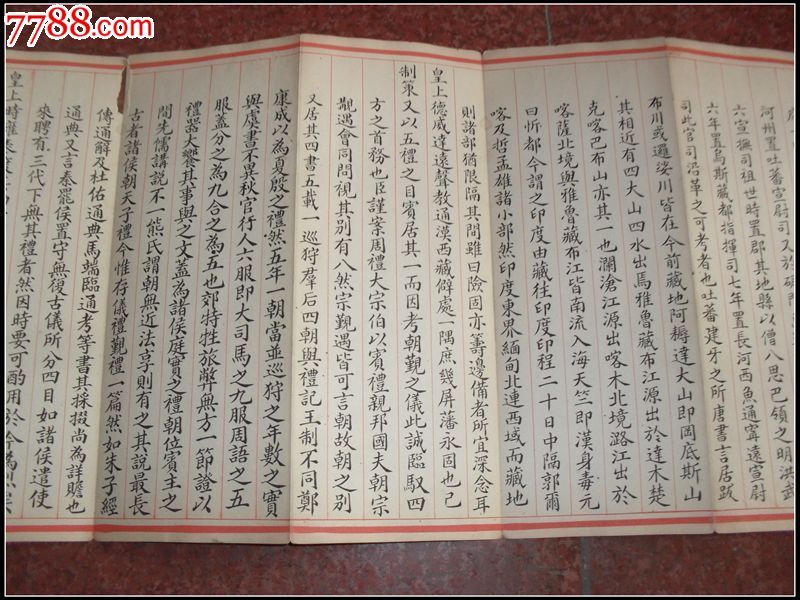 7788.com
河州置吐蕃宣尉司又於碉門
六宣撫司祖世時置郡其地縣以僧八思巴領之明洪武
六年置烏斯藏都指揮司七年置長河西魚通寧遠宣尉
司此官司沿革之可考者也吐蕃建牙之所唐書言居跋
布川或邏娑川皆在今前藏地阿耨達大山即岡底斯山
其相近有四大山四水出焉雅魯藏布江源出於達木楚
克喀巴布山亦其一也瀾滄江源出喀木北境潞江出於
喀薩北境與雅魯藏布江皆南流入海天竺即漢身毒元
曰忻都今謂之印度由藏往印度印程二十日中隔郭爾
喀及哲孟雄諸小部然印度東界緬甸北連西域而藏地
則諸部猶限隔其間雖曰險固亦籌邊備者所宜深念耳
皇上德威達遠聲教通漠西藏僻處一隅庶幾屏藩永固也已
制策又以五禮之目賓居其一而因考朝覲之儀此誠臨馭四
方之首務也臣謹案周禮大宗伯以賓禮親邦國夫朝宗
覲遇會同問視其別有八然宗覲遇皆可言朝故朝之別
又居其四書五載一巡狩羣后四朝與禮記王制不同鄭
康成以為夏殷之禮然五年一朝當並巡狩之年數之實
與虞書不異秋官行人六服即大司馬之九服周語之五
服蓋分之為九合之為五也郊特牲旅幣無方一節證以
禮器大饗其事與之文蓋為諸侯庭實之禮朝位賓主之
間先儒講說不一熊氏謂朝無近法享則有之其說最長
古者諸侯朝天子禮今惟存儀禮覲禮一篇然如朱子經
傳通解及杜佑通典馬端臨通考等書其採掇尚為詳贍也
通典又言秦罷侯置守無復古儀所分四目如諸侯遣使
來聘有三代下無其禮者然因時要可酌用於今為
皇上時